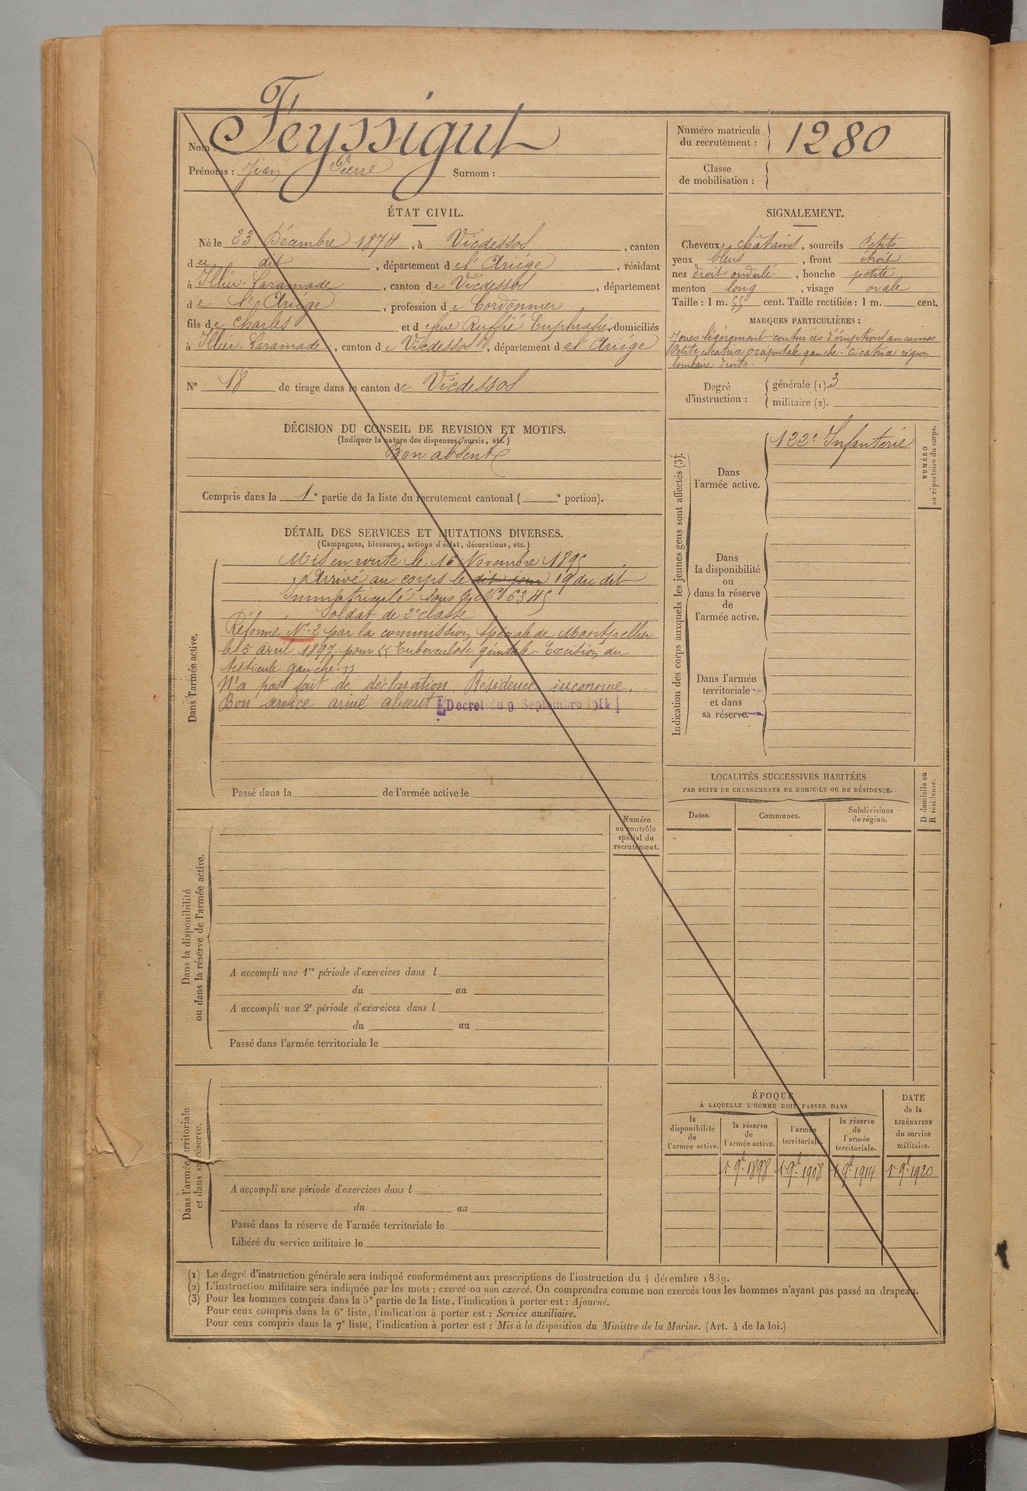 Nom : Feyssigut
Prénoms : Jean Pierre Surnom :
Numéro matricule du recrutement : 1280
Classe de mobilisation :
ÉTAT CIVIL.
Né le 23 Décembre 1874, à Vicdessos, canton
de dit, département de l'Ariége, résidant
à Illier-Laramade, canton de Vicdessos, département
de l'Ariège, profession de Cordonnier
fils de Charles et de Ruffié Euphrasie, domiciliés
à Illier-Laramade, canton de Vicdessos, département de l'Ariége
N° 18 de tirage dans le canton de Vicdessos
SIGNALEMENT.
Cheveux châtains, sourcils Petits
yeux bleus, front droit
nez droit ondulé, bouche petite
menton long, visage ovale
Taille : 1 m. 55 cent. Taille rectifiée : 1 m. cent.
MARQUES PARTICULIÈRES :
Petite cicatrice occipitale gauche. Cicatrice région
lombaire droite.
Degré d'instruction : générale (1) 3
militaire (2).
DÉCISION DU CONSEIL DE REVISION ET MOTIFS.
(Indiquer la nature des dispenses, sursis, etc.)
Bon absent
Compris dans la 1e partie de la liste du recrutement cantonal ( e portion).
DÉTAIL DES SERVICES ET MUTATIONS DIVERSES.
(Campagnes, blessures, actions d'éclat, décorations, etc.)
Dans l'armée active.
Mis en route le 16 Novembre 1895
Arrivé au corps le dit jour 19 du dit
Immatriculé sous le N° 6345
Soldat de 2e classe
Réformé N° 2 par la commission spéciale de Montpellier
le 15 avril 1897 pour "Tuberculose génitale. Excision du
testicule gauche."
N'a pas fait de déclaration. Résidence inconnue.
Bon service armé absent Décret du 9 Septembre 1914
Passé dans la de l'armée active le
Indication des corps auxquels les jeunes gens sont affectés (3).
NUMÉRO au répertoire du corps.
Dans l'armée active.
122e Infanterie
Dans la disponibilité ou dans la réserve de l'armée active.
Dans l'armée territoriale et dans sa réserve.
LOCALITÉS SUCCESSIVES HABITÉES
PAR SUITE DE CHANGEMENTS DE DOMICILE OU DE RÉSIDENCE.
Dates. Communes. Subdivisions de région. D domicile ou R résidence.
Dans la disponibilité ou dans la réserve de l'armée active.
Numéro au contrôle spécial du recrutement.
A accompli une 1re période d'exercices dans l
du au
A accompli une 2e période d'exercices dans l
du au
Passé dans l'armée territoriale le
Dans l'armée territoriale et dans sa réserve.
A accompli une période d'exercices dans l
du au
Passé dans la réserve de l'armée territoriale le
Libéré du service militaire le
ÉPOQUE
À LAQUELLE L'HOMME DOIT PASSER DANS
la disponibilité de l'armée active. la réserve de l'armée active. l'armée territoriale. la réserve de l'armée territoriale. DATE de la LIBÉRATION du service militaire.
1 9bre 1898 1 9bre 1908 1 9bre 1914 1 9bre 1920
(1) Le degré d'instruction générale sera indiqué conformément aux prescriptions de l'instruction du 4 décembre 1889.
(2) L'instruction militaire sera indiquée par les mots : exercé ou non exercé. On comprendra comme non exercés tous les hommes n'ayant pas passé au drapeau.
(3) Pour les hommes compris dans la 5e partie de la liste, l'indication à porter est : Ajourné.
Pour ceux compris dans la 6e liste, l'indication à porter est : Service auxiliaire.
Pour ceux compris dans la 7e liste, l'indication à porter est : Mis à la disposition du Ministre de la Marine. (Art. 4 de la loi.)